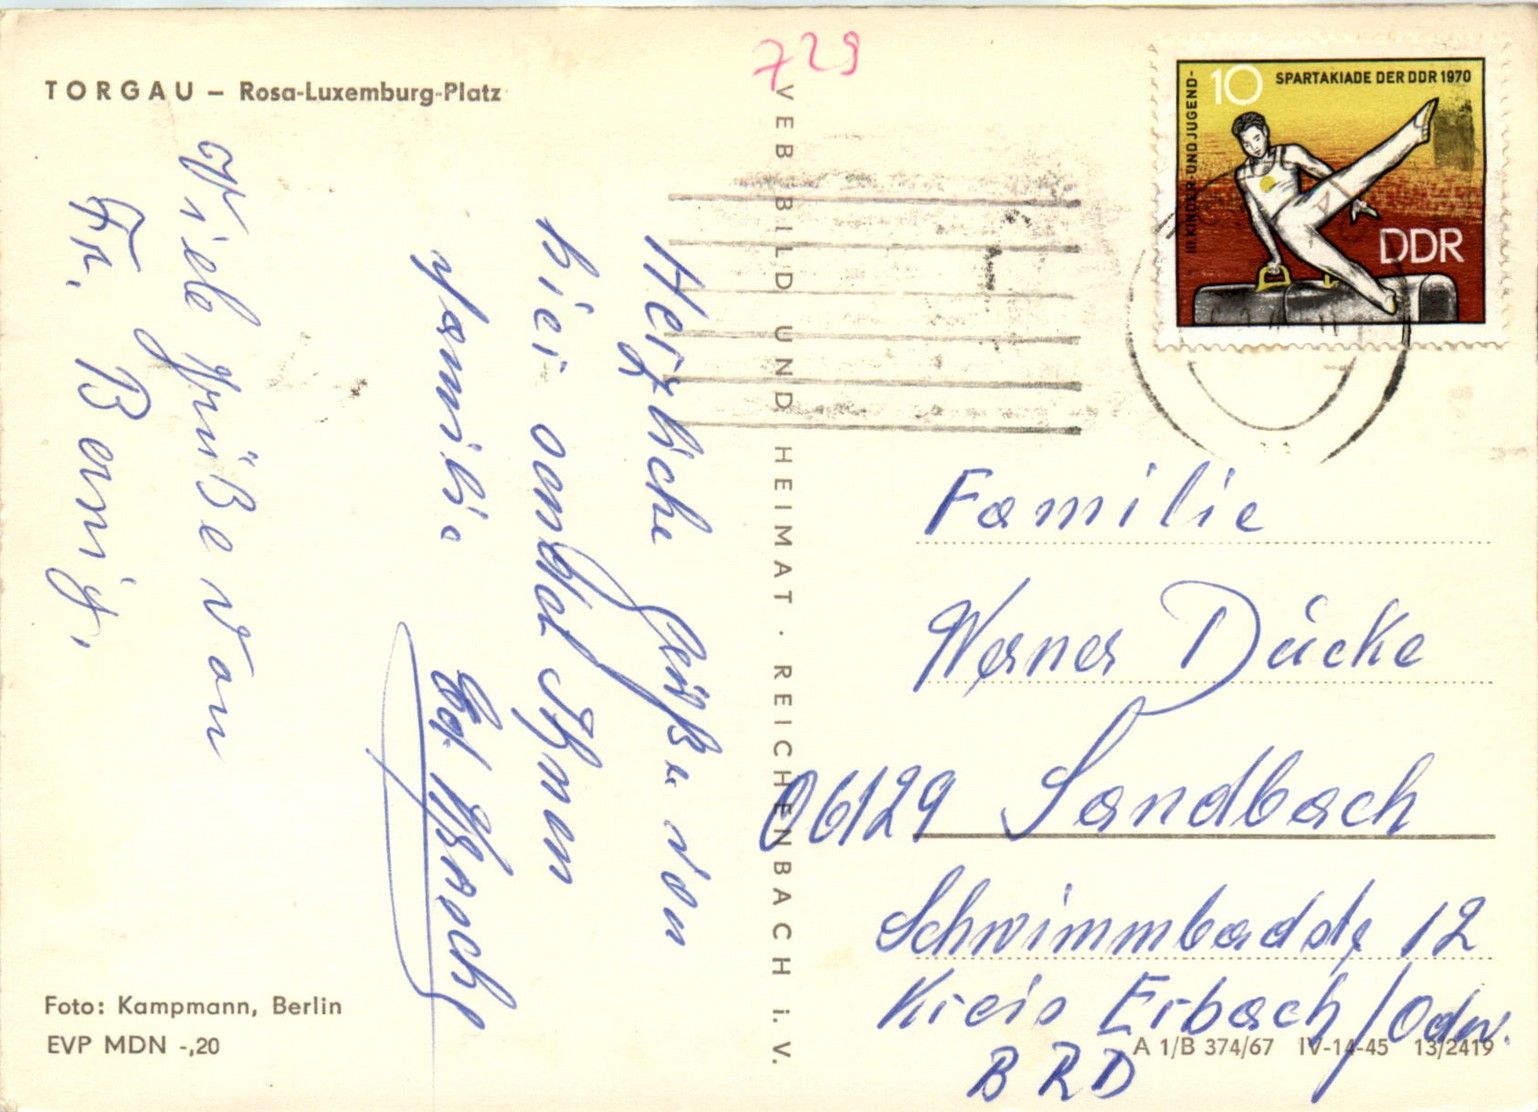 TORGAU – Rosa-Luxemburg-Platz
729
III. KINDER- UND JUGEND-
10 SPARTAKIADE DER DDR 1970
DDR
Herzliche Grüße von
hier sendet Ihnen
Familie
Viele Grüße von
Fr.
VEB BILD UND HEIMAT · REICHENBACH i. V.
Familie
Werner Dücke
06129 Sandbach
Schwimmbadstr 12
Kreis Erbach/Odw.
BRD
Foto: Kampmann, Berlin
EVP MDN -,20
A 1/B 374/67 IV-14-45 13/2419